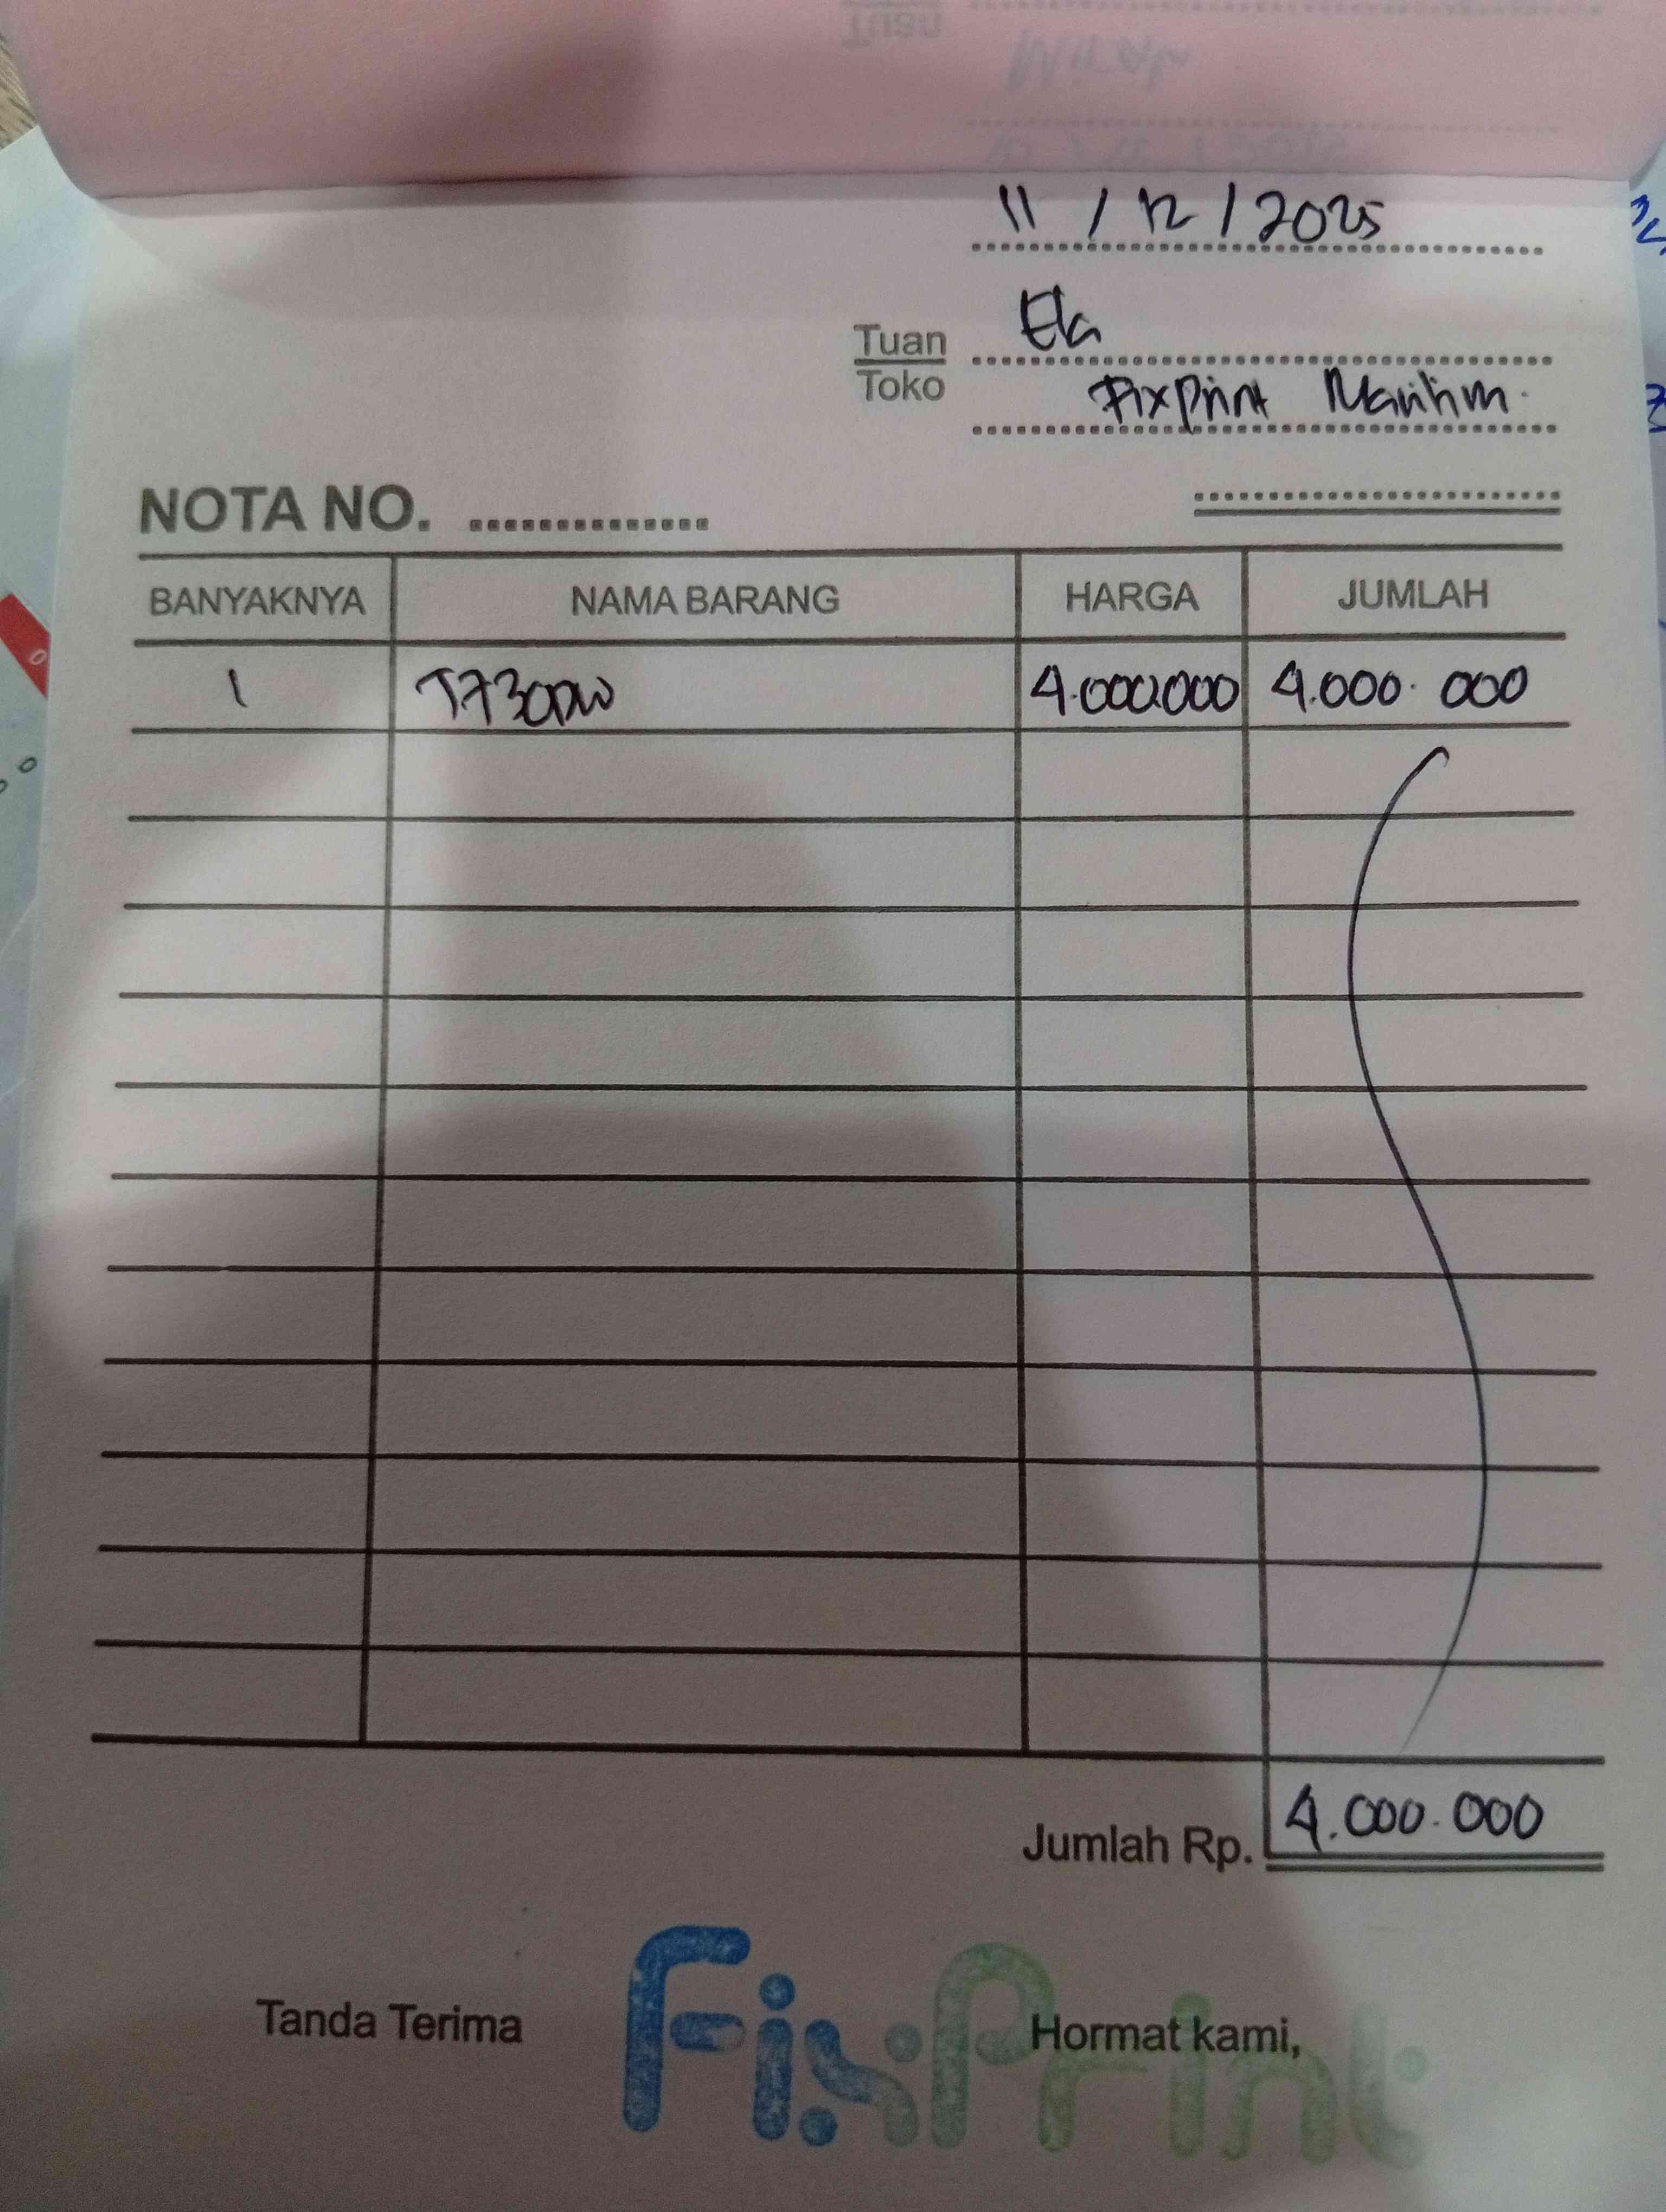 Tuan
11 / 12 / 2025
Tuan Ela
Toko Fixprint Maritim.
NOTA NO. ..............
BANYAKNYA NAMA BARANG HARGA JUMLAH
1 T730DW 4.000.000 4.000.000
Jumlah Rp. 4.000.000
Tanda Terima Hormat kami,
FixPrint